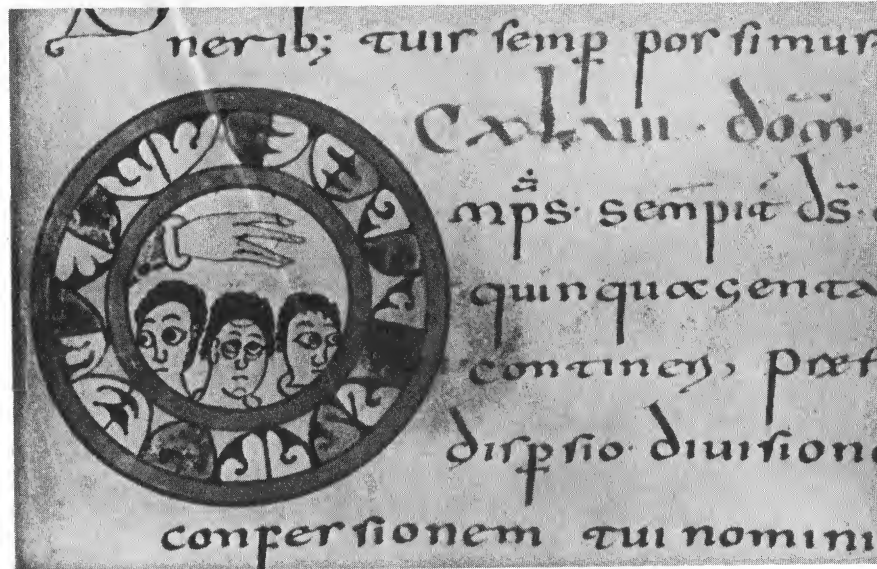 nerib; tuis semꝑ possimus
CXLVIIII · dom̄
mp̄s · sempit̄ ds̄ ·
quinquagenta
continen, præf
disꝑsio · diuision
confessionem tui nomini